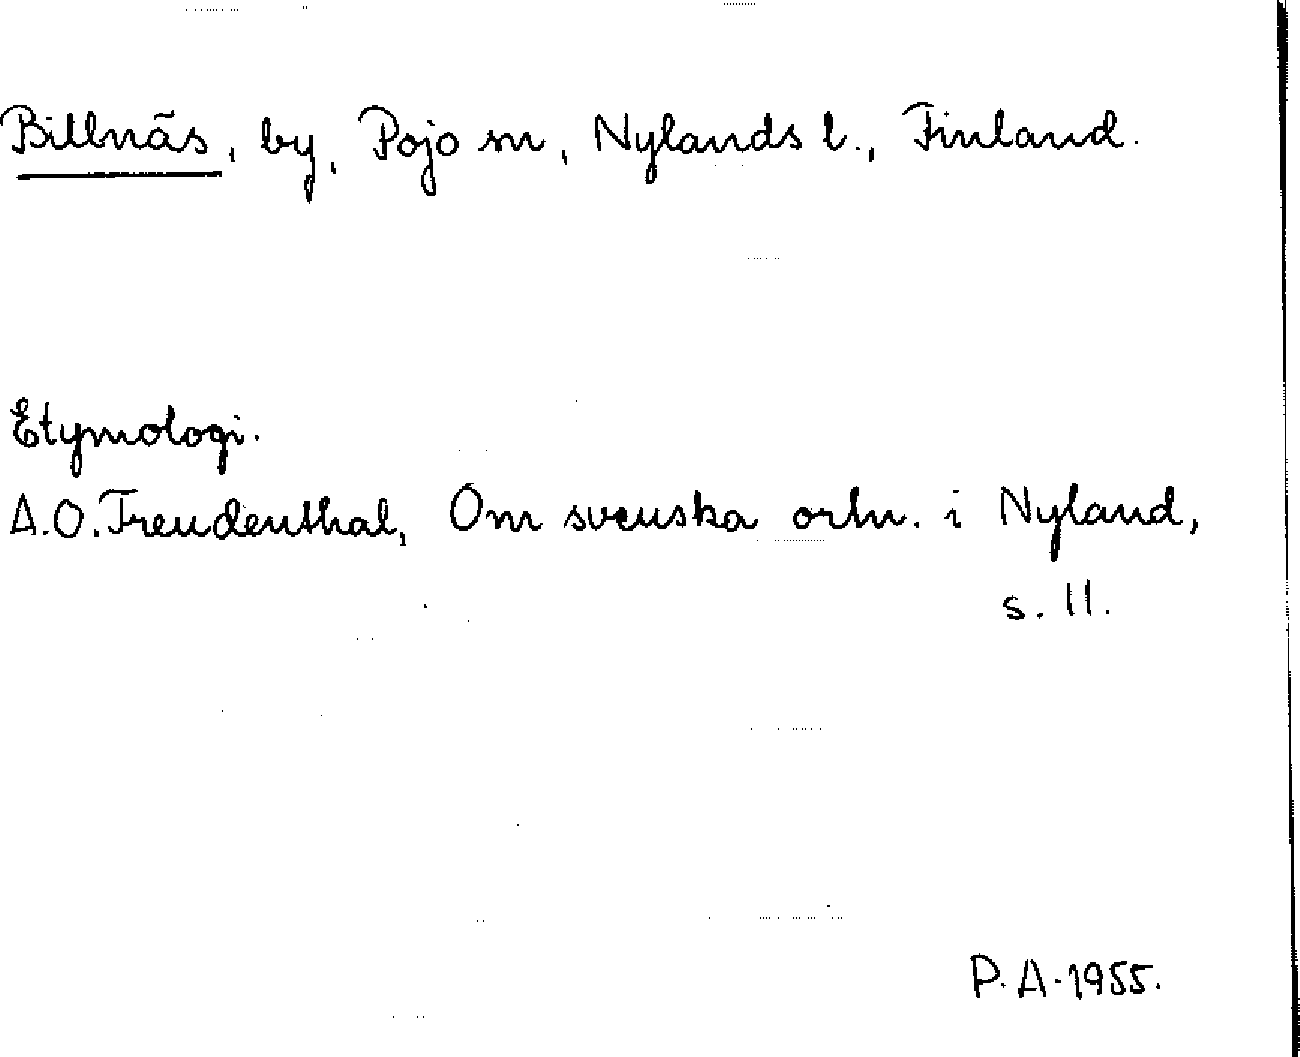 Billnäs, by, Pojo sn, Nylands l., Finland.
Etymologi.
A.O. Freudenthal, Om svenska ortn. i Nyland,
s. 11.
P.A. 1955.